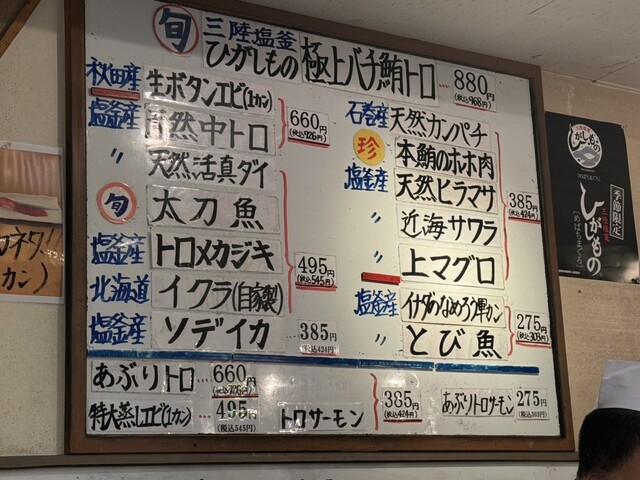 旬 三陸塩釜 ひがしもの 極上バチ鮪トロ 880円 (税込968円)
秋田産 生ボタンエビ(1カン)
塩釜産 天然中トロ 660円 (税込726円)
〃 天然活真ダイ
旬 太刀魚
塩釜産 トロメカジキ 495円 (税込545円)
北海道 イクラ(自家製)
塩釜産 ソデイカ 385円 (税込424円)
石巻産 天然カンパチ
珍 本鮪のホホ肉
塩釜産 天然ヒラマサ 385円 (税込424円)
〃 近海サワラ
〃 上マグロ
塩釜産 イナダのなめろう 275円 (税込303円)
〃 とび魚
あぶりトロ 660円 (税込726円)
特大蒸しエビ(1カン) 495円 (税込545円)
トロサーモン 385円 (税込424円)
あぶりトロサーモン 275円 (税込303円)
ひがしもの
季節限定
三陸塩釜
ひがしもの
[めばちまぐろ]
カン)